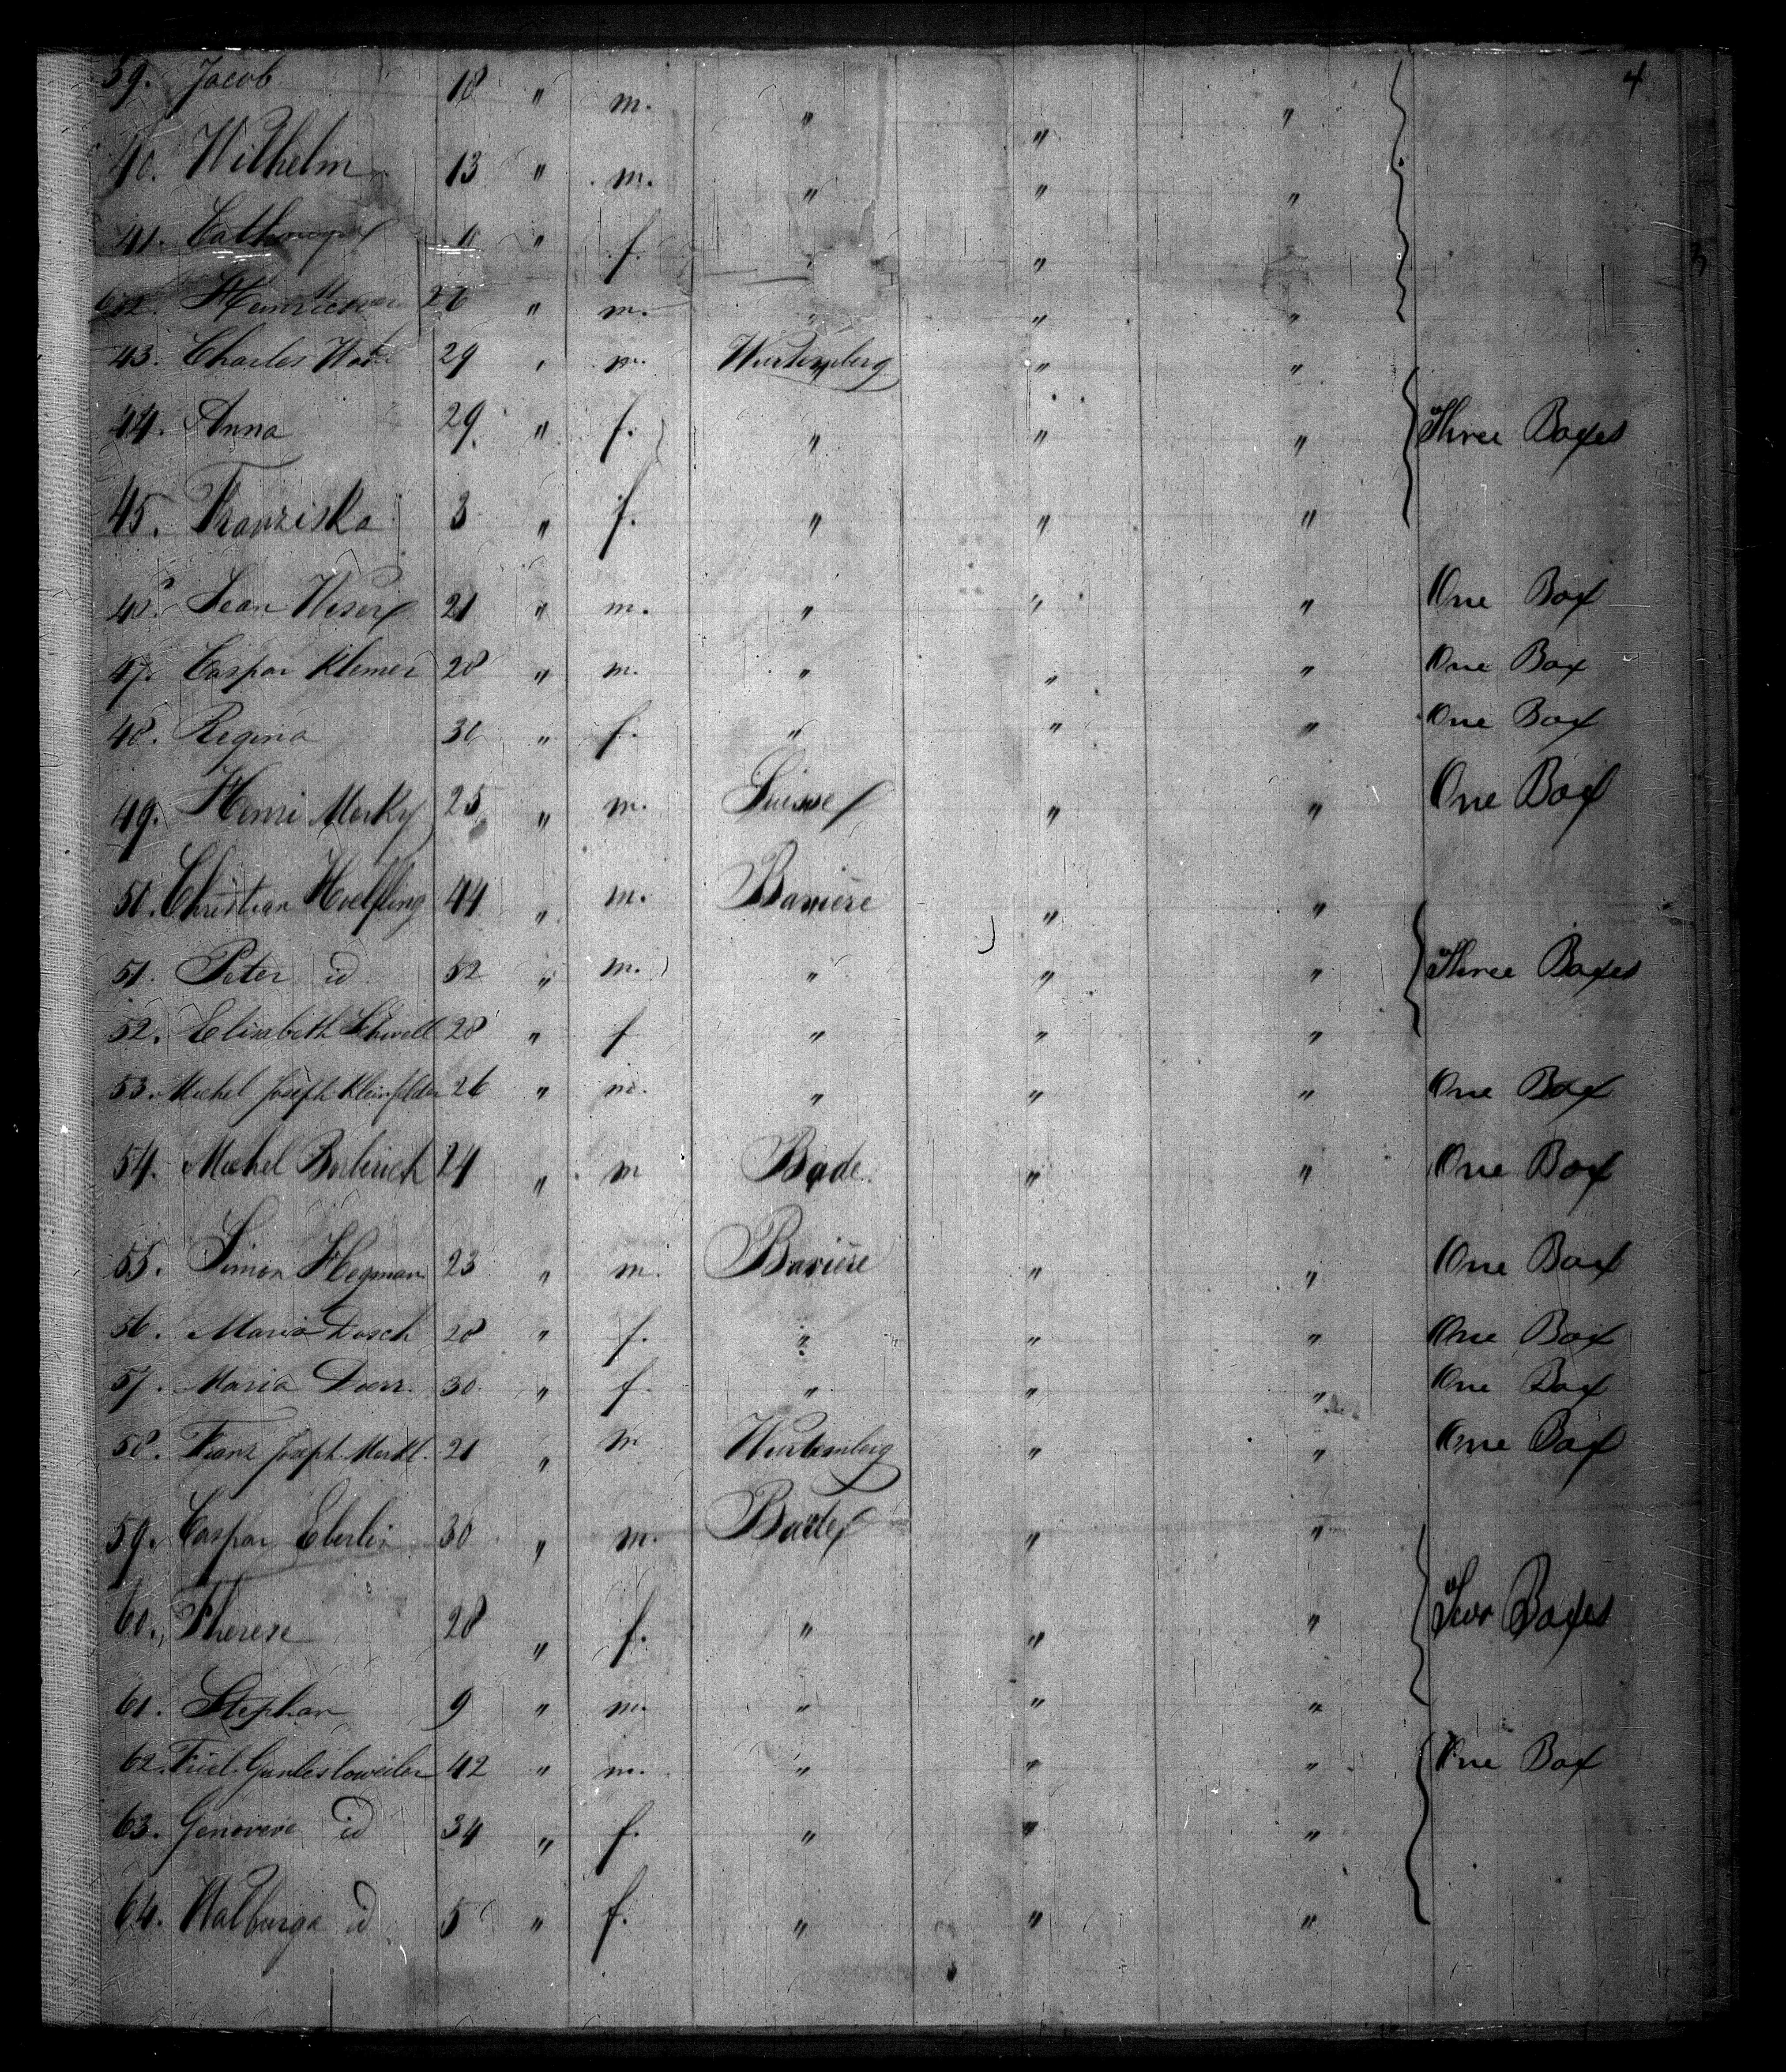 4
39. Jacob 18 " m. " " "
40. Wilhelm 13 " m. " " "
41. " f. " " "
42. 26 " m. " " "
43. Charles 29 " m. Wurtemberg " "
44. Anna 29 " f. " " " Three Boxes
45. Franziska 3 " f. " " "
46. Jean 21 " m. " " " One Box
47. Caspar Klemer 28 " m. " " " One Box
48. Regina 30 " f. " " " One Box
49. Henri Merky 25 " m. Suisse " " One Box
50. Christian Hoelfling 44 " m. Baviere " "
51. Peter id 52 " m. " " " Three Boxes
52. Elisabeth 28 " f " " "
53. Michel Joseph Kleinfelder 26 " m. " " " One Box
54. Michel 24 " m Bade " " One Box
55. Simon Hegman 23 " m. Baviere " " One Box
56. Maria Dosch 28 " f. " " " One Box
57. Maria Doerr. 30 " f. " " " One Box
58. Franz Joseph Merkl. 21 " m Wurtemberg " " One Box
59. Caspar Eberlin 30 " m. Bade " "
60. Therese 28 " f. " " " Two Boxes
61. Stephan 9 " m. " " "
62. 42 " m. " " " One Box
63. Genoveve id 34 " f. " " "
64. Walburga id 5 " f. " " "